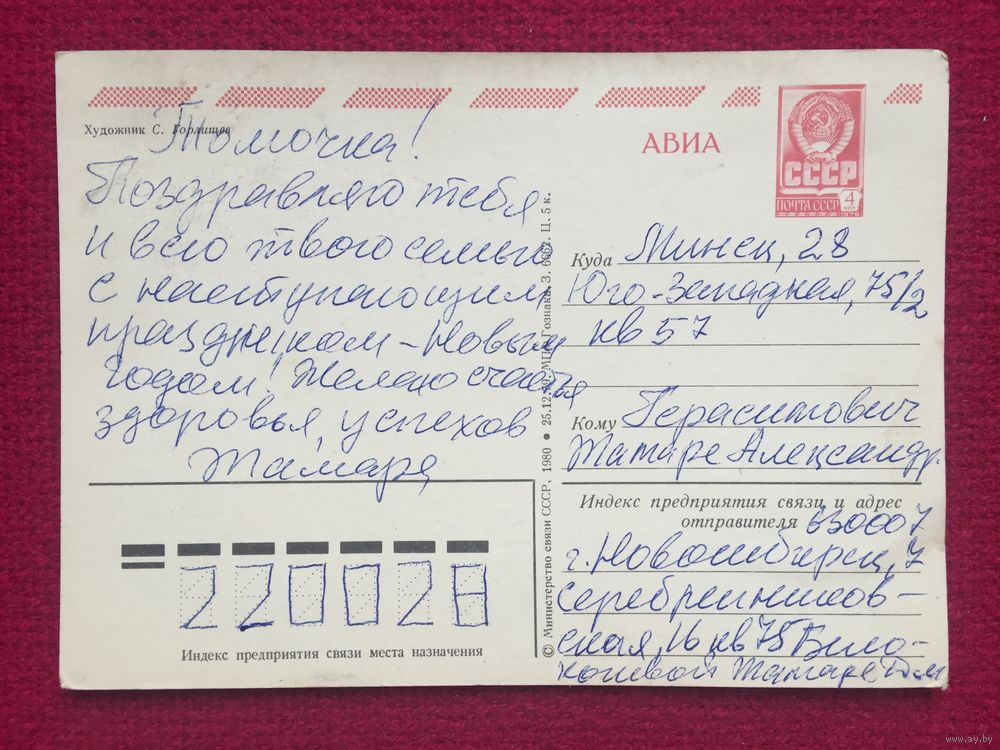 Художник С. Горлищев
Томочка!
Поздравляю тебя
и всю твою семью
с наступающим
праздником - Новым
годом! Желаю счастья
здоровья, успехов
Тамара
АВИА
СССР
ПОЧТА СССР 4 КОП
1976
Куда Минск, 28
Юго-Западная, 75/2
кв 57
Кому Герасимович
Тамаре Александр.
Индекс предприятия связи и адрес
отправителя 630007
г. Новосибирск, 7
Серебренников-
ская, 16 кв 75 Бело-
коневой Тамаре
© Министерство связи СССР, 1980 • 25.12.79. МПФ Гознака. З. 6662. Ц. 5 к.
220028
Индекс предприятия связи места назначения
www.ay.by